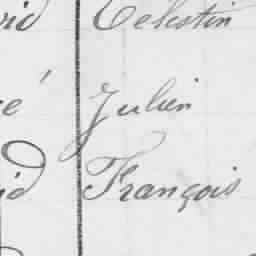 id Célestin
é Julien
id François